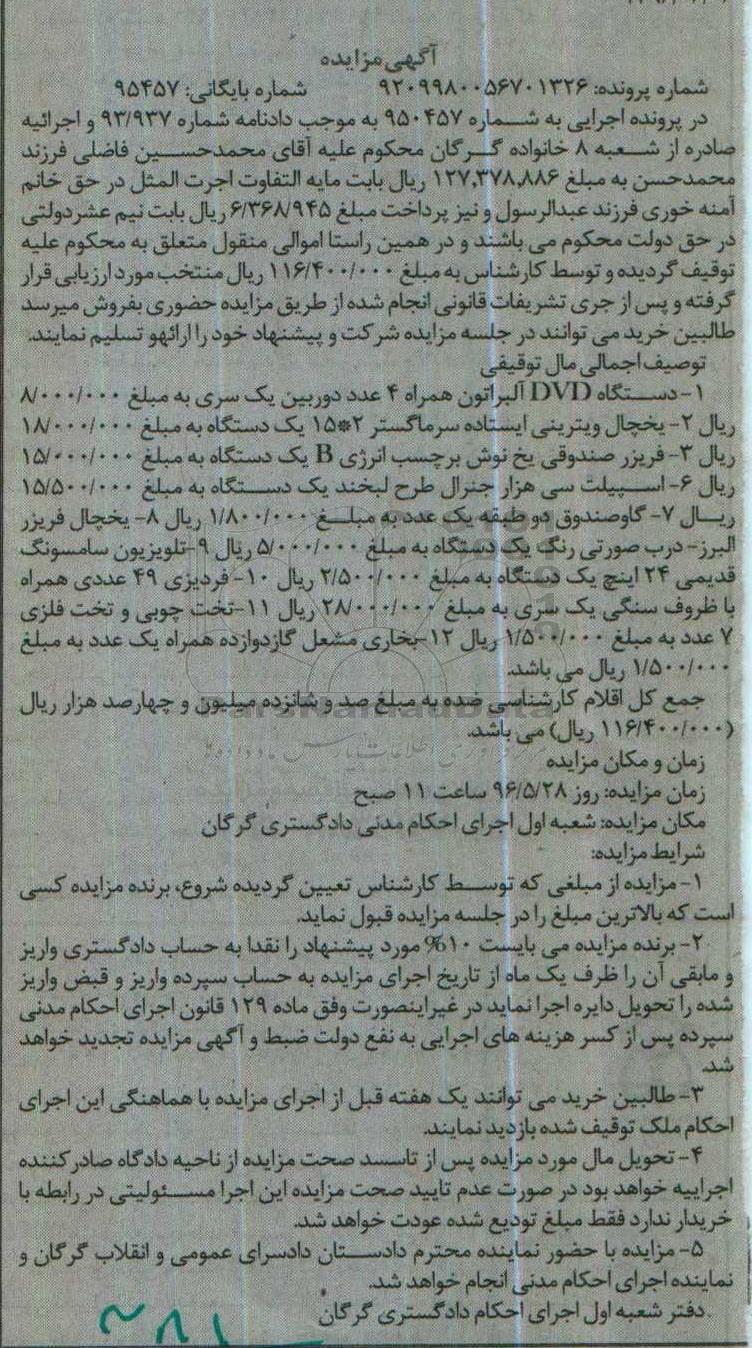 آگهی مزایده
شماره پرونده: ۹۲۰۹۹۸۰۰۵۶۷۰۱۳۲۶ شماره بایگانی: ۹۵۴۵۷
در پرونده اجرایی به شماره ۹۵۰۴۵۷ به موجب دادنامه شماره ۹۳/۹۳۷ و اجرائیه
صادره از شعبه ۸ خانواده گرگان محکوم علیه آقای محمدحسین فاضلی فرزند
محمدحسن به مبلغ ۱۲۷,۳۷۸,۸۸۶ ریال بابت مابه التفاوت اجرت المثل در حق خانم
آمنه خوری فرزند عبدالرسول و نیز پرداخت مبلغ ۶/۳۶۸/۹۴۵ ریال بابت نیم عشر دولتی
در حق دولت محکوم می باشند و در همین راستا اموالی منقول متعلق به محکوم علیه
توقیف گردیده و توسط کارشناس به مبلغ ۱۱۶/۴۰۰/۰۰۰ ریال منتخب مورد ارزیابی قرار
گرفته و پس از جری تشریفات قانونی انجام شده از طریق مزایده حضوری بفروش میرسد
طالبین خرید می توانند در جلسه مزایده شرکت و پیشنهاد خود را ارائهو تسلیم نمایند.
توصیف اجمالی مال توقیفی
۱- دستگاه DVD آلبراتون همراه ۴ عدد دوربین یک سری به مبلغ ۸/۰۰۰/۰۰۰
ریال ۲- یخچال ویترینی ایستاده سرماگستر ۲*۱۵ یک دستگاه به مبلغ ۱۸/۰۰۰/۰۰۰
ریال ۳- فریزر صندوقی یخ نوش برچسب انرژی B یک دستگاه به مبلغ ۱۵/۰۰۰/۰۰۰
ریال ۶- اسپیلت سی هزار جنرال طرح لبخند یک دستگاه به مبلغ ۱۵/۵۰۰/۰۰۰
ریال ۷- گاوصندوق دو طبقه یک عدد به مبلغ ۱/۸۰۰/۰۰۰ ریال ۸- یخچال فریزر
البرز- درب صورتی رنگ یک دستگاه به مبلغ ۵/۰۰۰/۰۰۰ ریال ۹-تلویزیون سامسونگ
قدیمی ۲۴ اینچ یک دستگاه به مبلغ ۲/۵۰۰/۰۰۰ ریال ۱۰- فردیزی ۴۹ عددی همراه
با ظروف سنگی یک سری به مبلغ ۲۸/۰۰۰/۰۰۰ ریال ۱۱-تخت چوبی و تخت فلزی
۷ عدد به مبلغ ۱/۵۰۰/۰۰۰ ریال ۱۲-بخاری مشعل گازدوازده همراه یک عدد به مبلغ
۱/۵۰۰/۰۰۰ ریال می باشد.
جمع کل اقلام کارشناسی ضده به مبلغ صد و شانزده میلیون و چهارصد هزار ریال
(۱۱۶/۴۰۰/۰۰۰ ریال) می باشد.
زمان و مکان مزایده
زمان مزایده: روز ۹۶/۵/۲۸ ساعت ۱۱ صبح
مکان مزایده: شعبه اول اجرای احکام مدنی دادگستری گرگان
شرایط مزایده:
۱- مزایده از مبلغی که توسط کارشناس تعیین گردیده شروع، برنده مزایده کسی
است که بالاترین مبلغ را در جلسه مزایده قبول نماید.
۲- برنده مزایده می بایست ۱۰% مورد پیشنهاد را نقدا به حساب دادگستری واریز
و مابقی آن را ظرف یک ماه از تاریخ اجرای مزایده به حساب سپرده واریز و قبض واریز
شده را تحویل دایره اجرا نماید در غیراینصورت وفق ماده ۱۲۹ قانون اجرای احکام مدنی
سپرده پس از کسر هزینه های اجرایی به نفع دولت ضبط و آگهی مزایده تجدید خواهد
شد.
۳- طالبین خرید می توانند یک هفته قبل از اجرای مزایده با هماهنگی این اجرای
احکام ملک توقیف شده بازدید نمایند.
۴- تحویل مال مورد مزایده پس از تاسسد صحت مزایده از ناحیه دادگاه صادر کننده
اجراییه خواهد بود در صورت عدم تایید صحت مزایده این اجرا مسئولیتی در رابطه با
خریدار ندارد فقط مبلغ تودیع شده عودت خواهد شد.
۵- مزایده با حضور نماینده محترم دادستان دادسرای عمومی و انقلاب گرگان و
نماینده اجرای احکام مدنی انجام خواهد شد.
دفتر شعبه اول اجرای احکام دادگستری گرگان